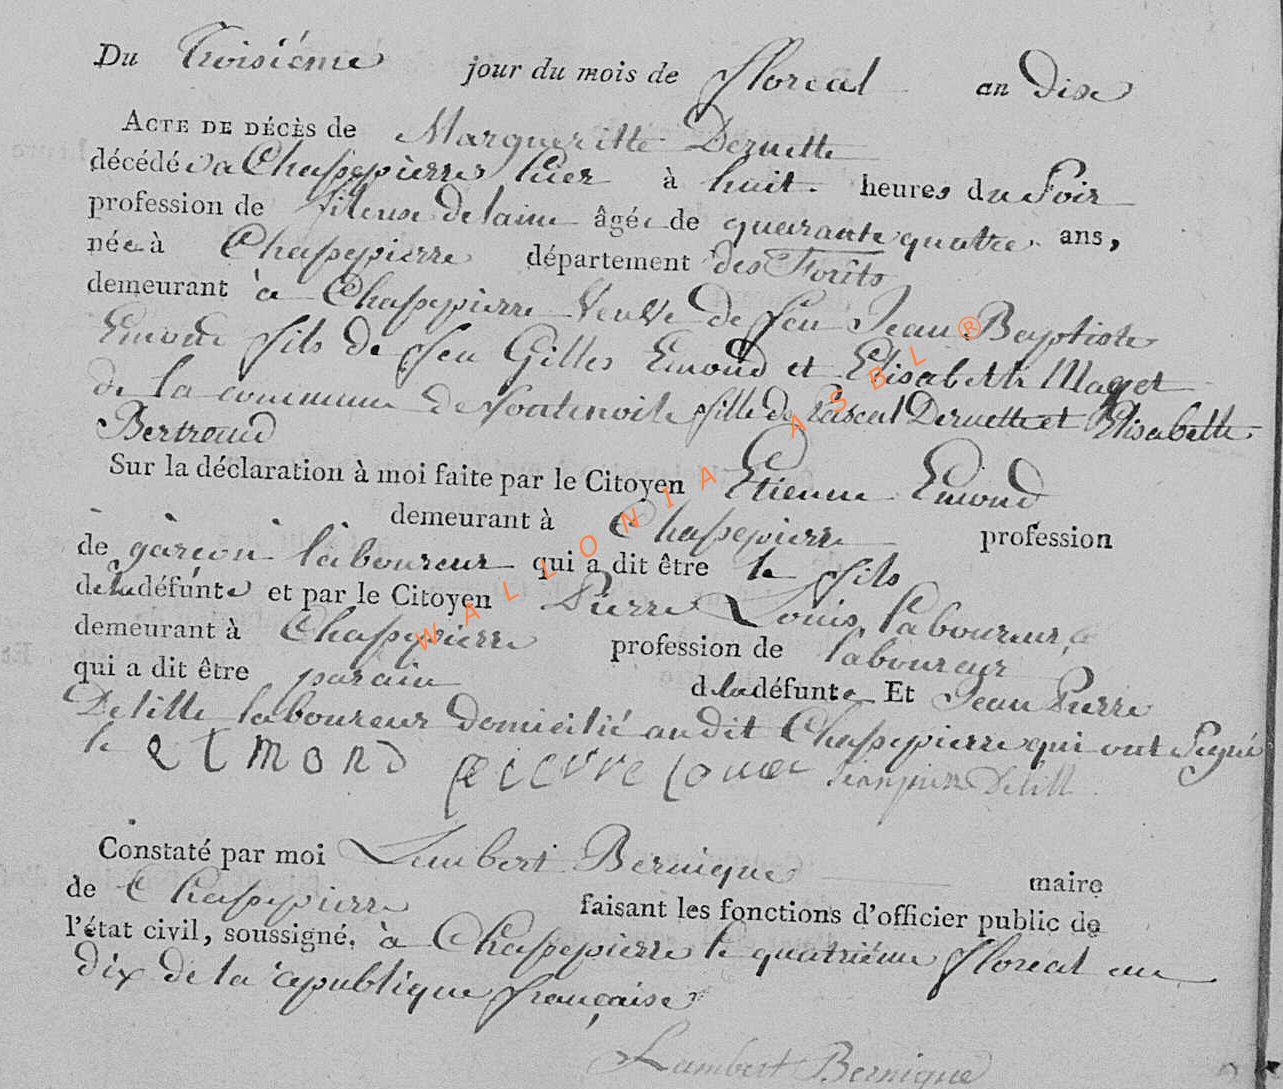 Du Troisiéme jour du mois de floreal an dix
ACTE DE DÉCÈS de Margueritte Dernette
décédée a Chassepierre hier à huit heures du Soir
profession de fileuse de laine âgée de quarante quatre ans,
née à Chassepierre département des Forêts
demeurant à Chassepierre Veuve de feu Jean Baptiste
Emond fils de feu Gilles Emond et Elisabeth Maget
de la commune de fontenoile fille de Pascal Dernette et Elisabette
Bertrand
Sur la déclaration à moi faite par le Citoyen Etienne Emond
demeurant à Chassepierre profession
de garçon laboureur qui a dit être le fils
de la défunte et par le Citoyen Pierre Louis laboureur
demeurant à Chassepierre profession de laboureur
qui a dit être parain d la défunte Et Jean Pierre
Delille laboureur domicilié au dit Chassepierre qui ont Signé
le etmond pierre louer Jean pierre Delill
Constaté par moi Lambert Bernique maire
de Chassepierre faisant les fonctions d'officier public de
l'état civil, soussigné, à Chassepierre le quatriéme floreal an
dix de la republique française
Lambert Bernique
WALLONIA ASBL ®